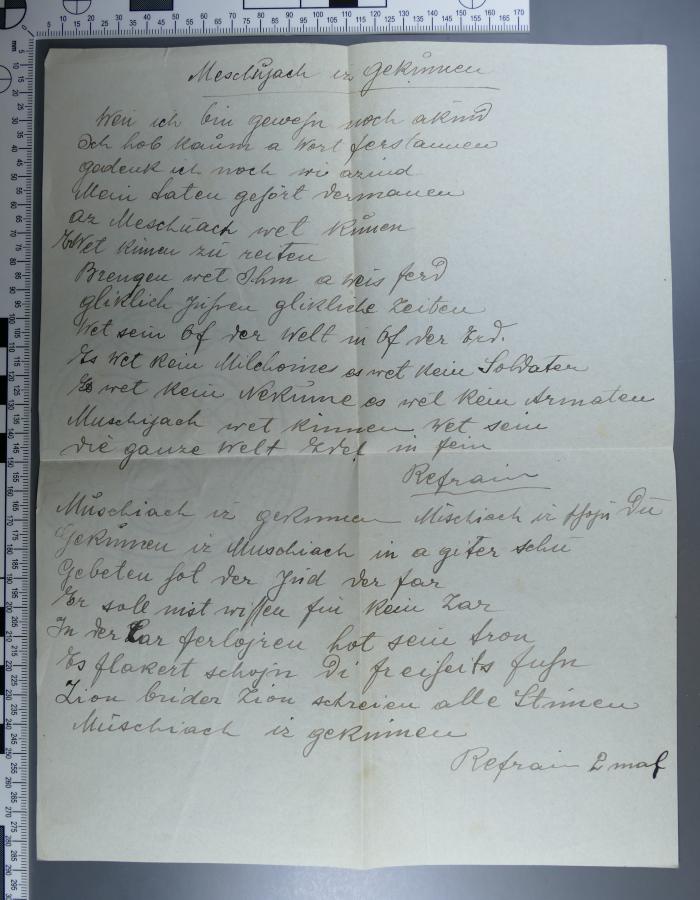 Meschijach iz gekůnnen
Wen ich bin gewehn noch akind
Ich hob kaům a Wort ferstannen
gadenk ich noch wi azind
Mein taten gehört dermanen
az Meschůach wet kůmen
Wet kimen zů reiten
Brengen wet Ihm a weis ferd
gliklich Juhren glikliche Zeiten
Wet sein Of der Welt in Of der Erd.
Es wet kein Milchomes es wet kein Soldaten
Es wet kein Nekůme es wet kein Armaten
Muschijach wet kinnen wet sein
die ganze Welt Edel in fein
Refrain
Můschiach iz gekimmen Mischiach iz schojn Dů
Gekůmen iz Muschiach in a giter schů
Gebeten hot der Jud der far
Er soll nist wissen fin kein Zar
In der Zar ferlojren hot sein tron
Es flakert schojn Di freiheits fuhn
Zion brider Zion schreien alle Stimen
Můschiach iz gekimmen
Refrain 2 mal